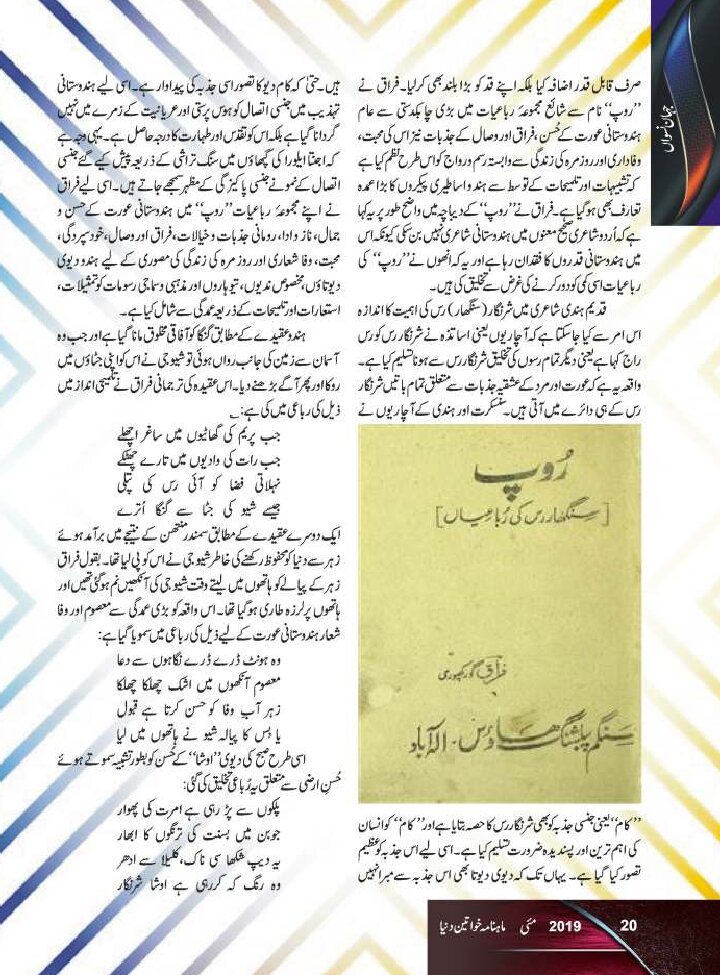 جہانِ نسواں
صرف قابل قدر اضافہ کیا بلکہ اپنے قد کو بڑا بلند بھی کرلیا۔ فراق نے
’’روپ‘‘ نام سے شائع مجموعۂ رباعیات میں بڑی چابکدستی سے عام
ہندوستانی عورت کے حُسن، فراق اور وصال کے جذبات نیز اس کی محبت،
وفاداری اور روزمرہ کی زندگی سے وابستہ رسم و رواج کو اس طرح نظم کیا ہے
کہ تشبیہات اور تلمیحات کے توسط سے ہندو اساطیری پیکروں کا بڑا عمدہ
تعارف بھی ہوگیا ہے۔ فراق نے ’’روپ‘‘ کے دیباچہ میں واضح طور پر یہ کہا
ہے کہ اُردو شاعری صحیح معنوں میں ہندوستانی شاعری نہیں بن سکی کیونکہ اس
میں ہندوستانی قدروں کا فقدان رہا ہے اور یہ کہ انھوں نے ’’روپ‘‘ کی
رباعیات اسی کمی کو دور کرنے کی غرض سے تخلیق کی ہیں۔
قدیم ہندی شاعری میں شرنگار (سنگھار) رس کی اہمیت کا اندازہ
اس امر سے کیا جاسکتا ہے کہ آچاریوں یعنی اساتذہ نے شرنگار رس کو رس
راج کہا ہے یعنی دیگر تمام رسوں کی تخلیق شرنگار رس سے ہونا تسلیم کیا ہے۔
واقعہ یہ ہے کہ عورت اور مرد کے عشقیہ جذبات سے متعلق تمام باتیں شرنگار
رس کے ہی دائرے میں آتی ہیں۔ سنسکرت اور ہندی کے آچاریوں نے
رُوپ
[سنگھار رس کی رُباعیاں]
فراق گورکھپوری
سنگم پبلشنگ ہاؤس۔ الٰہ آباد
’’کام‘‘ یعنی جنسی جذبہ کو بھی شرنگار رس کا حصہ بتایا ہے اور ’’کام‘‘ کو انسان
کی اہم ترین اور پسندیدہ ضرورت تسلیم کیا ہے۔ اسی لیے اس جذبہ کو عظیم
تصور کیا گیا ہے۔ یہاں تک کہ دیوی دیوتا بھی اس جذبہ سے مبرا نہیں
ہیں۔ حتیٰ کہ کام دیو کا تصور اسی جذبہ کی پیداوار ہے۔ اسی لیے ہندوستانی
تہذیب میں جنسی اتصال کو ہوس پرستی اور عریانیت کے زمرے میں نہیں
گردانا گیا ہے بلکہ اس کو تقدس اور طہارت کا درجہ حاصل ہے۔ یہی وجہ ہے
کہ اجنتا ایلورا کی گپھاؤں میں سنگ تراشی کے ذریعہ پیش کیے گئے جنسی
اتصال کے نمونے جنسی پاکیزگی کے مظہر سمجھے جاتے ہیں۔ اسی لیے فراق
نے اپنے مجموعۂ رباعیات ’’روپ‘‘ میں ہندوستانی عورت کے حسن و
جمال، ناز و ادا، رومانی جذبات و خیالات، فراق اور وصال، خود سپردگی،
محبت، وفا شعاری اور روزمرہ کی زندگی کی مصوری کے لیے ہندو دیوی
دیوتاؤں، مخصوص ندیوں، تیوہاروں اور مذہبی و سماجی رسومات کو تمثیلات،
استعارات اور تلمیحات کے ذریعہ عمدگی سے شامل کیا ہے۔
ہندو عقیدے کے مطابق گنگا کو آفاقی مخلوق مانا گیا ہے اور جب وہ
آسمان سے زمین کی جانب رواں ہوئی تو شیو جی نے اس کو اپنی جٹاؤں میں
روکا اور پھر آگے بڑھنے دیا۔ اس عقیدہ کی ترجمانی فراق نے تلمیحی انداز میں
ذیل کی رباعی میں کی ہے:۔
جب پریم کی گھاٹیوں میں ساغر اچھلے
جب رات کی وادیوں میں تارے چھٹکے
نہلاتی فضا کو آئی رس کی پتلی
جیسے شیو کی جٹا سے گنگا اُترے
ایک دوسرے عقیدے کے مطابق سمندر منتھن کے نتیجے میں برآمد ہوئے
زہر سے دنیا کو محفوظ رکھنے کی خاطر شیو جی نے اس کو پی لیا تھا۔ بقول فراق
زہر کے پیالے کو ہاتھوں میں لیتے وقت شیو جی کی آنکھیں نم ہوگئی تھیں اور
ہاتھوں پر لرزہ طاری ہوگیا تھا۔ اس واقعہ کو بڑی عمدگی سے معصوم اور وفا
شعار ہندوستانی عورت کے لیے ذیل کی رباعی میں سمویا گیا ہے:
وہ ہونٹ ڈرے ڈرے نگاہوں سے دعا
معصوم آنکھوں میں اشک چھلکا چھلکا
زہر آب وفا کو حسن کرتا ہے قبول
یا بِس کا پیالہ شیو نے ہاتھوں میں لیا
اسی طرح صبح کی دیوی ’’اوشا‘‘ کے حُسن کو بطور تشبیہ سموتے ہوئے
حُسنِ ارضی سے متعلق یہ رُباعی تخلیق کی گئی:
پلکوں سے پڑ رہی ہے امرت کی پھوار
جوبن میں بسنت کی ترنگوں کا ابھار
یہ دیپ شکھا سی ناک، کلیلا سے ادھر
وہ رنگ کہ کررہی ہے اوشا شرنگار
20 2019 مئی ماہنامہ خواتین دنیا